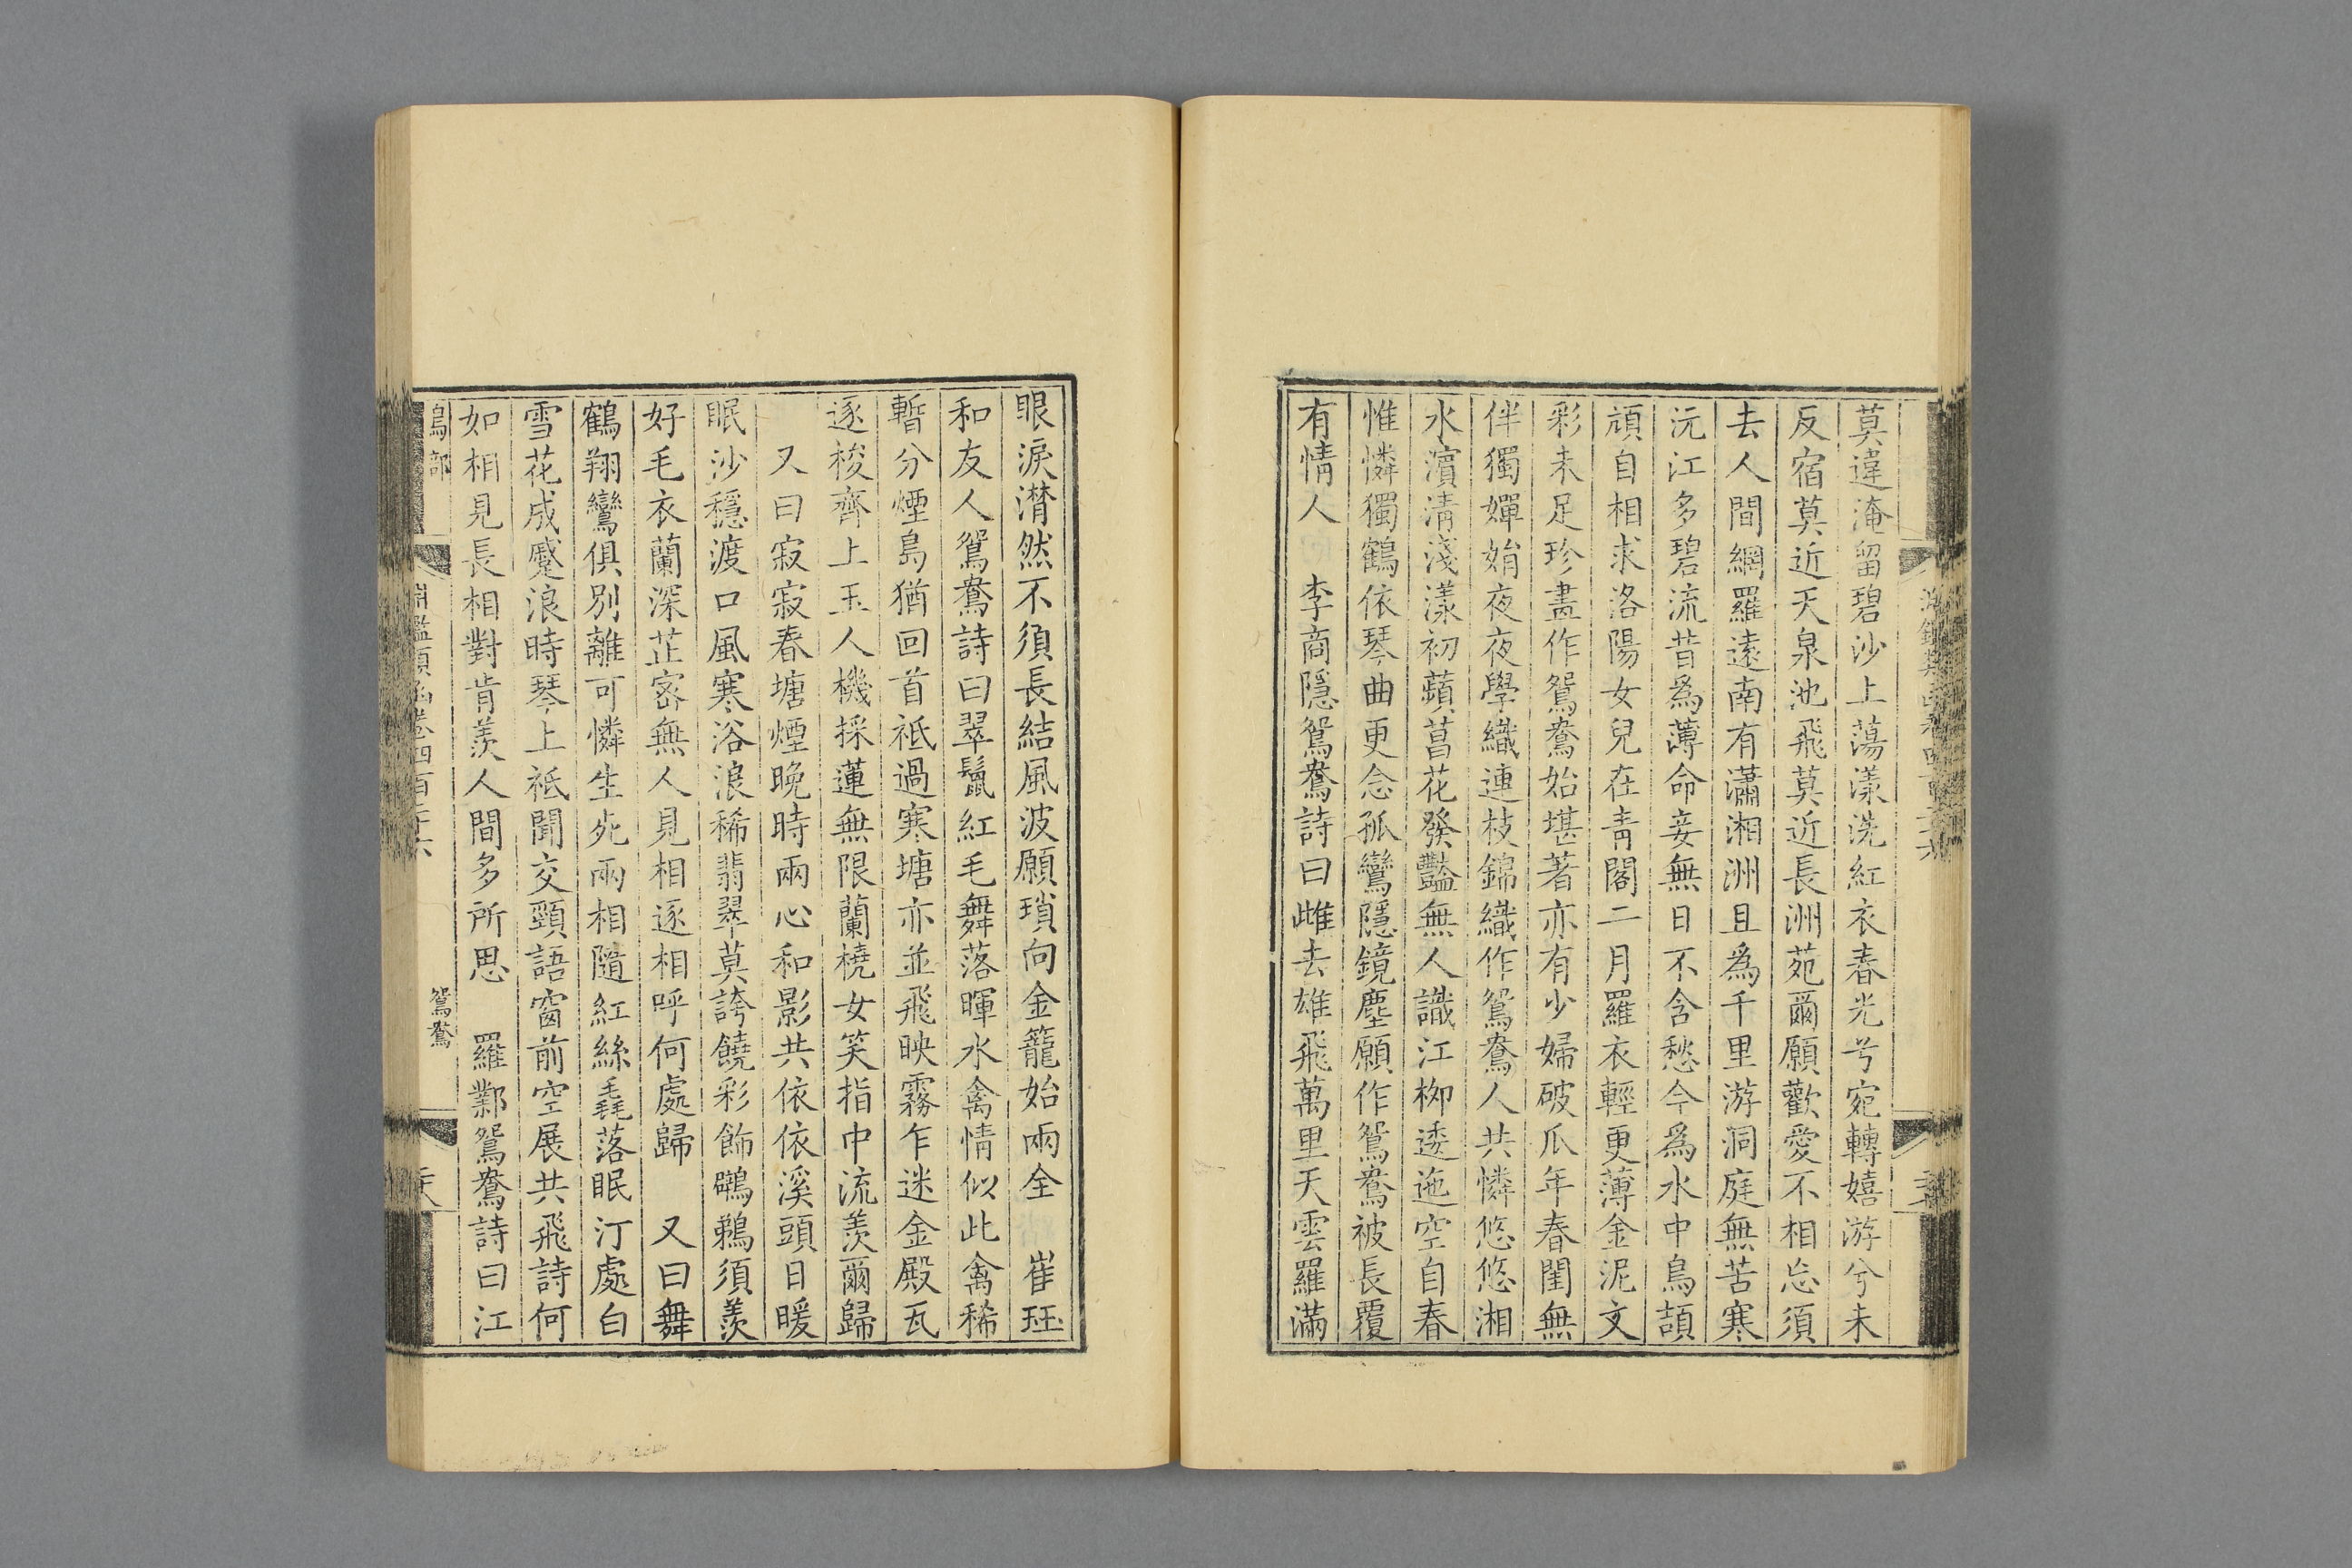 莫違淹留碧沙上蕩漾洗紅衣春光兮宛轉嬉游兮未
反宿莫近天泉池飛莫近長洲苑爾願歡愛不相忘須
去人間網羅遠南有瀟湘洲且為千里游洞庭無苦寒
沅江多碧流昔為薄命妾無日不含愁今為水中鳥頡
頏自相求洛陽女兒在青閣二月羅衣輕更薄金泥文
彩未足珍畫作鴛鴦始堪著亦有少婦破瓜年春閨無
伴獨嬋娟夜夜學織連枝錦織作鴛鴦人共憐悠悠湘
水濱清淺漾初蘋菖花發豔無人識江柳逶迤空自春
惟憐獨鶴依琴曲更念孤鸞隱鏡塵願作鴛鴦被長覆
有情人　李商隱鴛鴦詩曰雌去雄飛萬里天雲羅滿
眼淚潸然不須長結風波願瑣向金籠始兩全　崔珏
和友人鴛鴦詩曰翠鬣紅毛舞落暉水禽情似此禽稀
暫分煙島猶回首祗過寒塘亦並飛映霧乍迷金殿瓦
逐梭齊上玉人機採蓮無限蘭橈女笑指中流羨爾歸
又曰寂寂春塘煙晚時兩心和影共依依溪頭日暖
眠沙穩渡口風寒浴浪稀翡翠莫誇饒彩飾鸊鵜須羨
好毛衣蘭深芷密無人見相逐相呼何處歸　又曰舞
鶴翔鸞俱別離可憐生死兩相隨紅絲毳落眠汀處白
雪花成蹙浪時琴上祗聞交頸語窗前空展共飛詩何
如相見長相對肯羨人間多所思　羅鄴鴛鴦詩曰江
鳥部　淵鑑類函卷四百二十六　鴛鴦